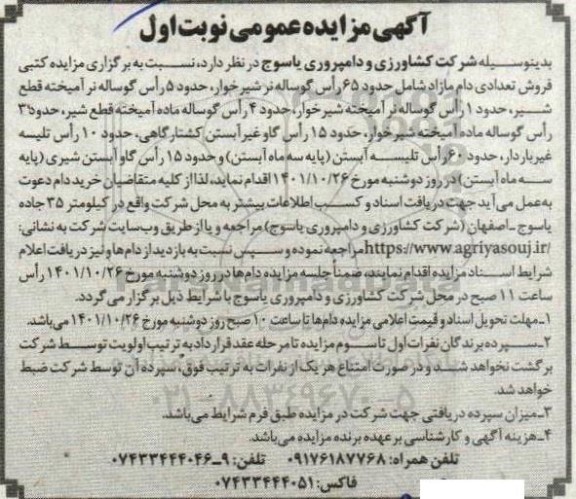 آگهی مزایده عمومی نوبت اول
بدینوسیله شرکت کشاورزی و دامپروری یاسوج در نظر دارد، نسبت به برگزاری مزایده کتبی
فروش تعدادی دام مازاد شامل حدود ۶۵ رأس گوساله نر شیرخوار، حدود ۵ رأس گوساله نر آمیخته قطع
شیر، حدود ۱ رأس گوساله نر آمیخته شیرخوار، حدود ۴ رأس گوساله ماده آمیخته قطع شیر، حدود ۳
رأس گوساله ماده آمیخته شیرخوار، حدود ۱۵ رأس گاو غیر آبستن کشتارگاهی، حدود ۱۰ رأس تلیسه
غیرباردار، حدود ۶۰ رأس تلیسه آبستن (پایه سه ماه آبستن) و حدود ۱۵ رأس گاو آبستن شیری (پایه
سه ماه آبستن) در روز دوشنبه مورخ ۱۴۰۱/۱۰/۲۶ اقدام نماید، لذا از کلیه متقاضیان خرید دام دعوت
به عمل می آید جهت دریافت اسناد و کسب اطلاعات بیشتر به محل شرکت واقع در کیلومتر ۳۵ جاده
یاسوج ـ اصفهان (شرکت کشاورزی و دامپروری یاسوج) مراجعه و یا از طریق وب سایت شرکت به نشانی:
https://www.agriyasouj.ir/ مراجعه نموده و سپس نسبت به بازدید از دام ها و نیز دریافت اعلام
شرایط اسناد مزایده اقدام نمایند، ضمناً جلسه مزایده دام ها در روز دوشنبه مورخ ۱۴۰۱/۱۰/۲۶ رأس
ساعت ۱۱ صبح در محل شرکت کشاورزی و دامپروری یاسوج با شرایط ذیل برگزار می گردد.
۱ـ مهلت تحویل اسناد و قیمت اعلامی مزایده دام ها تا ساعت ۱۰ صبح روز دوشنبه مورخ ۱۴۰۱/۱۰/۲۶ می باشد.
۲ـ سپرده برندگان نفرات اول تا سوم مزایده تا مرحله عقد قرارداد به ترتیب اولویت توسط شرکت
برگشت نخواهد شد و در صورت امتناع هر یک از نفرات به ترتیب فوق، سپرده آن توسط شرکت ضبط
خواهد شد.
۳ـ میزان سپرده دریافتی جهت شرکت در مزایده طبق فرم شرایط می باشد.
۴ـ هزینه آگهی و کارشناسی بر عهده برنده مزایده می باشد.
تلفن همراه: ۰۹۱۷۶۱۸۷۷۶۸ تلفن: ۹ـ۰۷۴۳۳۴۴۴۰۴۶
فاکس: ۰۷۴۳۳۴۴۴۰۵۱
ParsNamadData
۰۲۱-۸۸۳۴۹۶۷۰-۵